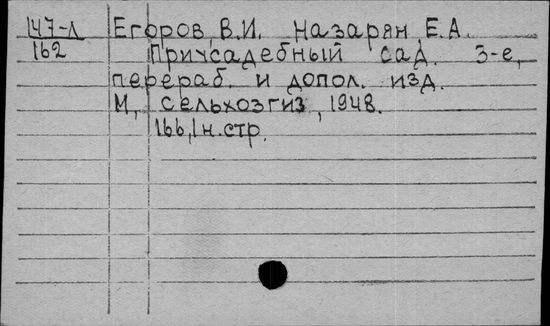 147-л Егоров, В.И. Назарян, Е.А.
162 Приусадебный сад. 3-е,
перераб. и допол. изд.
М, Сельхозгиз, 1948.
166,1н.стр.